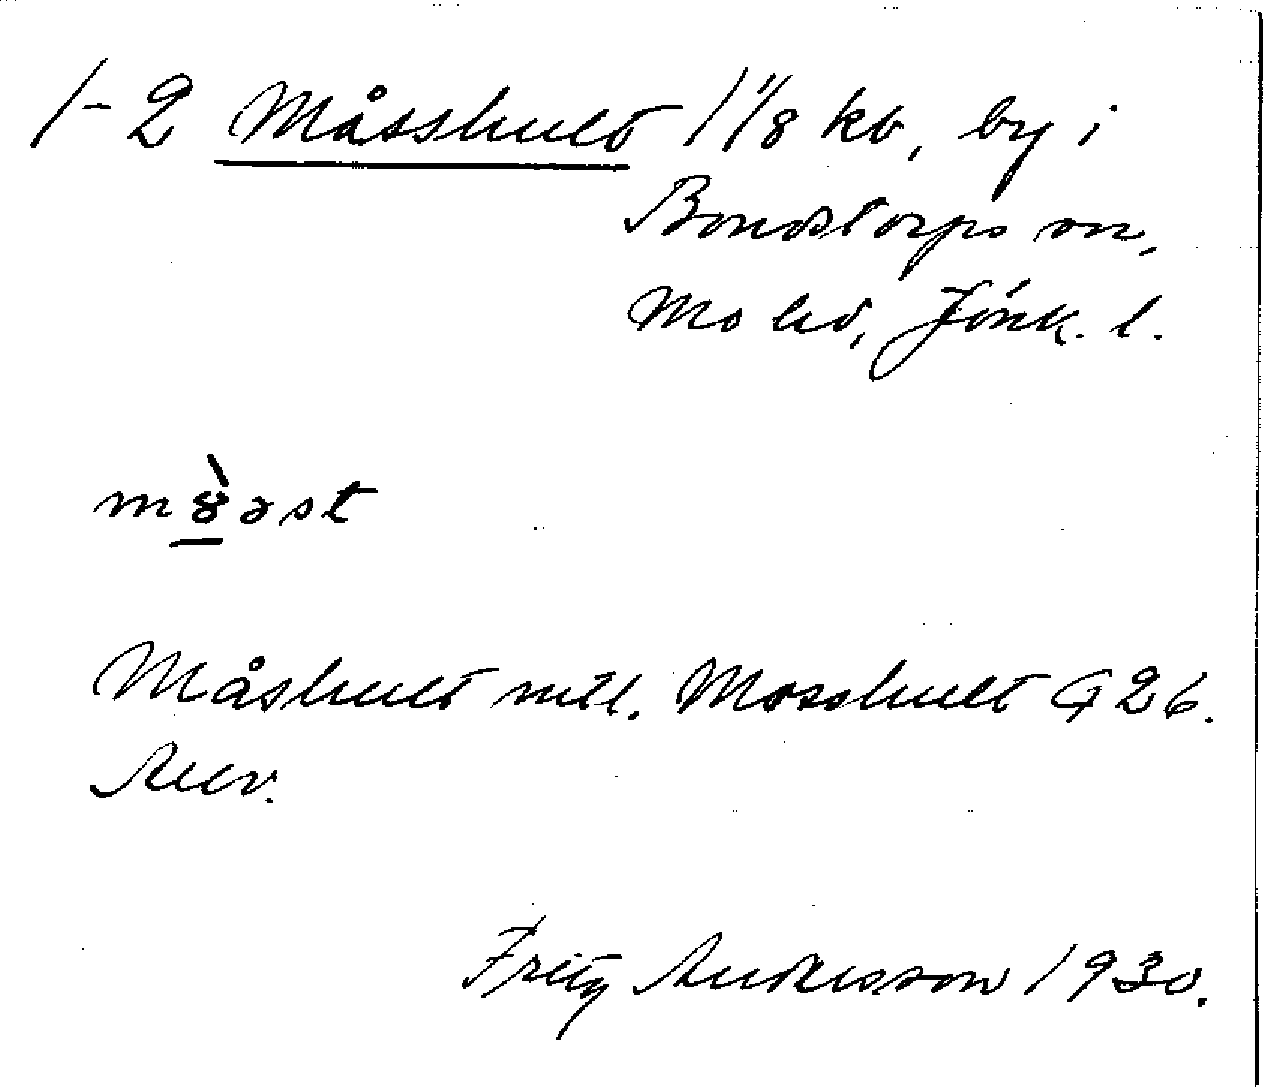 1-2 Måsshult 1 1/8 kb, by i
Bondstorps sn,
Mo hd, Jönk. l.
m8̀əst
Måshult mtl. Mosshult G 26.
Fritz Andersson 1930.